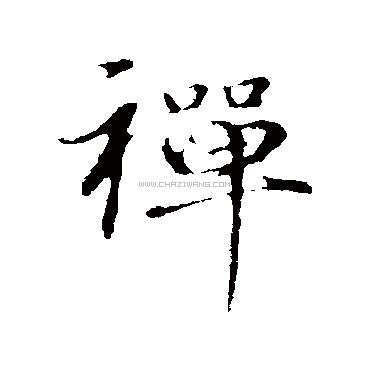 禪
WWW.CHAZIWANG.COM